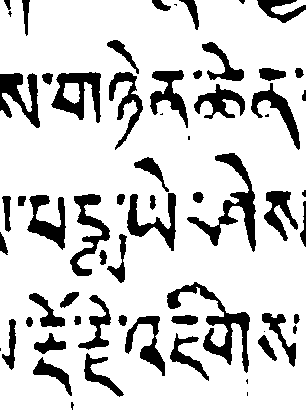 ས་གཉེན་ཆེན་
་པདྨ་ཡེ་ཤེས
་རྡོ་རྗེ་འཇིགས